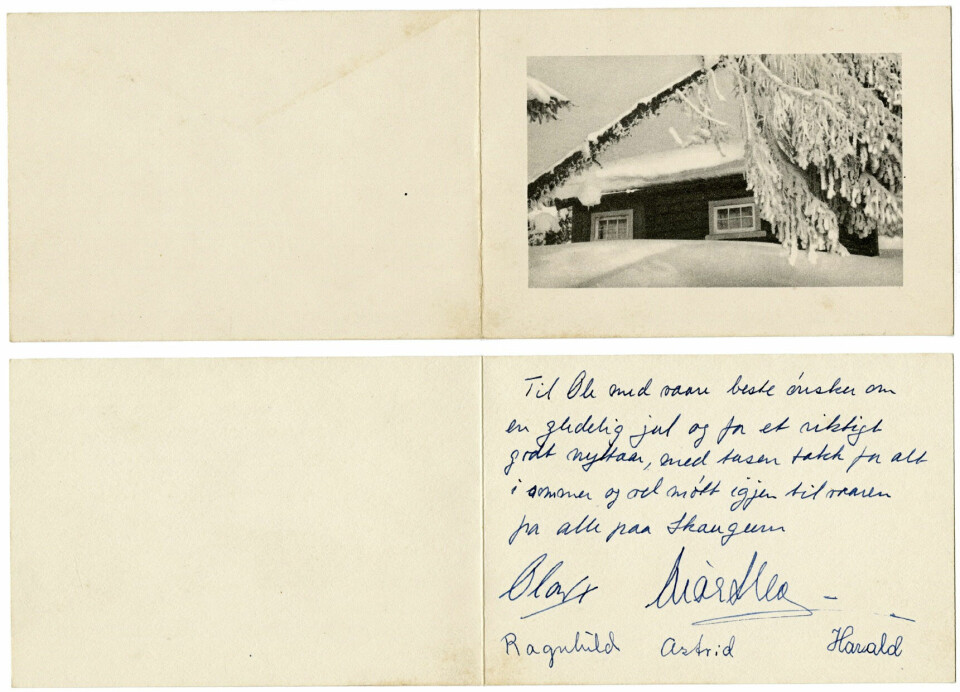 Til Ole med vaare beste ønsker om
en gledelig jul og for et riktigt
godt nyttaar, med tusen takk for alt
i sommer og vel møtt igjen til vaaren
fra alle paa Skaugum
Olav
Märtha
Ragnhild Astrid Harald